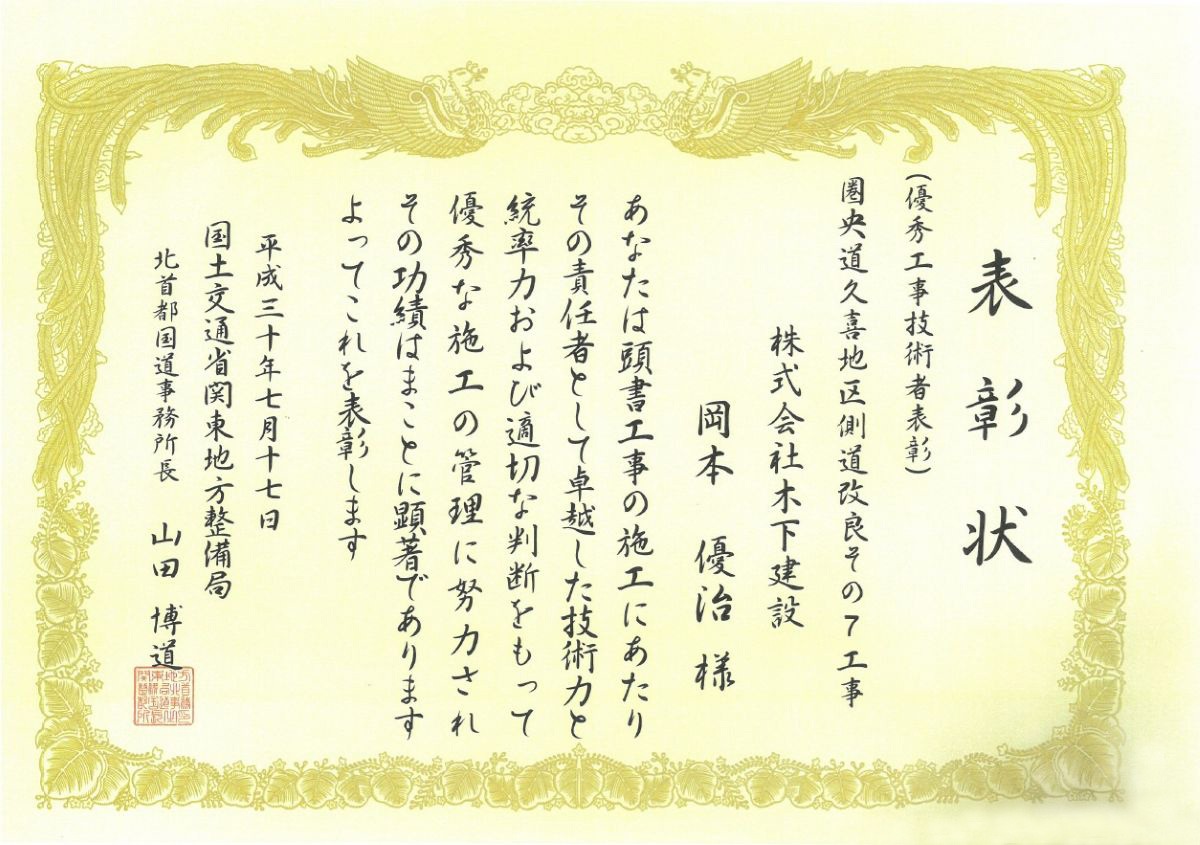 表彰状
(優秀工事技術者表彰)
圏央道久喜地区側道改良その7工事
株式会社木下建設
岡本 優治 様
あなたは頭書工事の施工にあたり
その責任者として卓越した技術力と
統率力および適切な判断をもって
優秀な施工の管理に努力され
その功績はまことに顕著であります
よってこれを表彰します
平成三十年七月十七日
国土交通省関東地方整備局
北首都国道事務所長 山田 博道